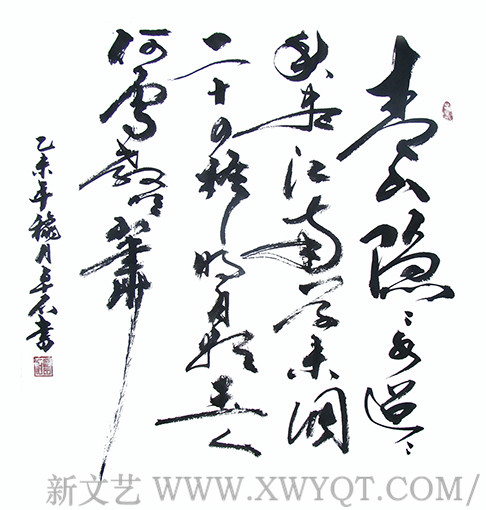 青山隐々水迢々
秋尽江南草未凋
二十四桥明月夜玉人
何處教吹簫
乙未年穐月石書
新文艺 WWW.XWYQT.COM/